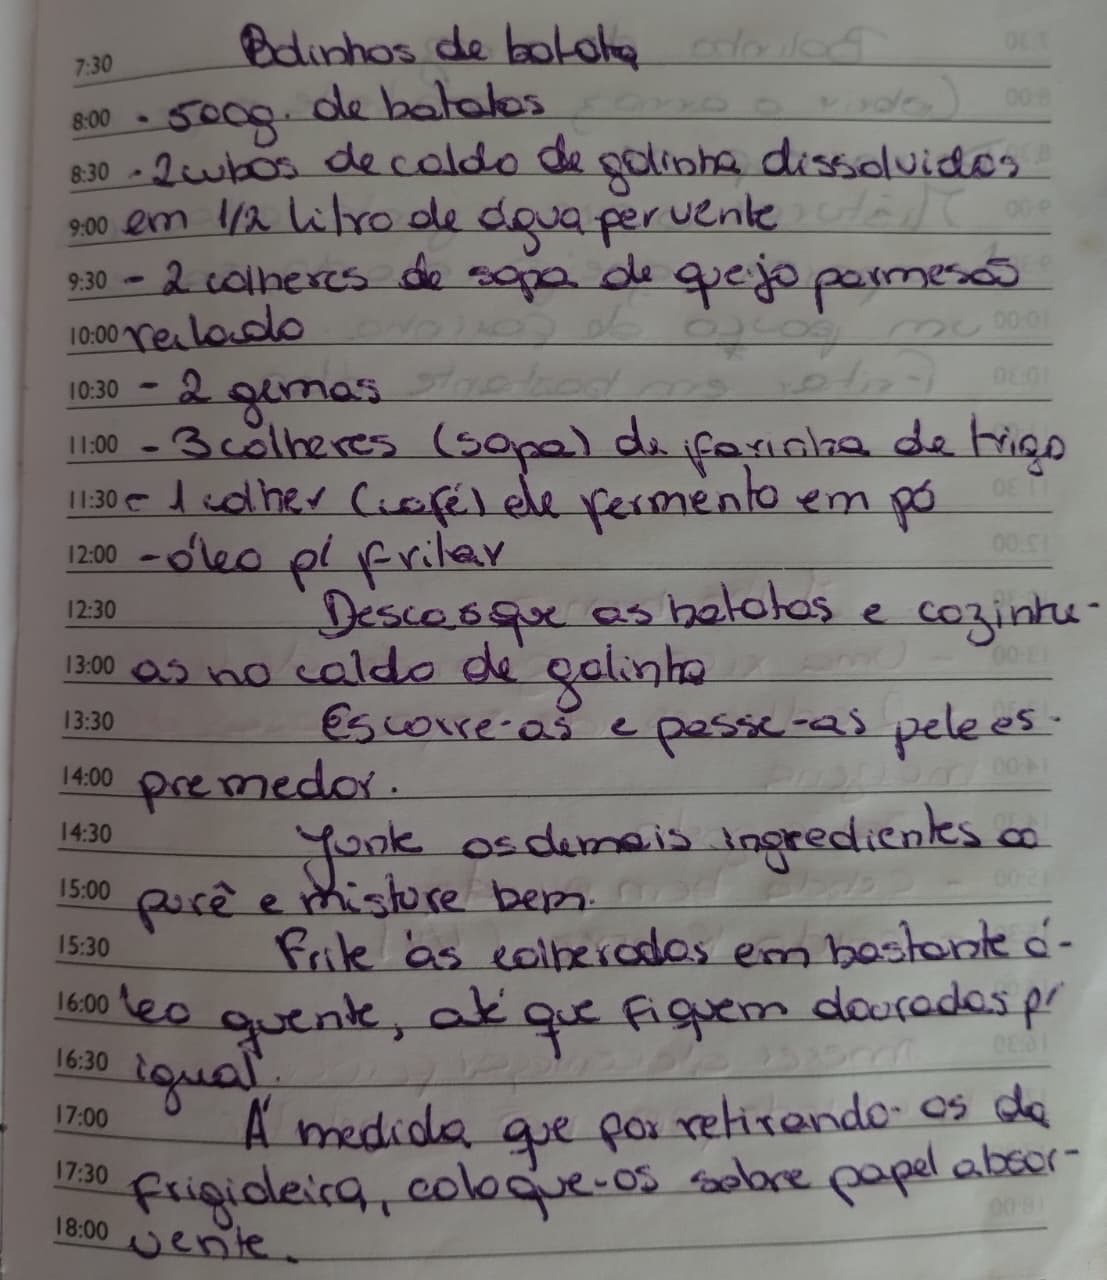 Bolinhos de batata
7:30
8:00 - 500g. de batatas
8:30 - 2 cubos de caldo de galinha dissolvidos
9:00 em 1/2 litro de água fervente
9:30 - 2 colheres de sopa de queijo parmesão
10:00 ralado
10:30 - 2 gemas
11:00 - 3 colheres (sopa) de farinha de trigo
11:30 - 1 colher (café) de fermento em pó
12:00 - óleo p/ fritar
12:30 Descasque as batatas e cozinhe-
13:00 as no caldo de galinha
13:30 Escorre-as e passe-as pele es-
14:00 premedor.
14:30 Junte os demais ingredientes ao
15:00 purê e misture bem.
15:30 Frite às colheradas em bastante ó-
16:00 leo quente, até que fiquem dourados p/
16:30 igual.
17:00 À medida que for retirando-os da
17:30 frigideira, coloque-os sobre papel absor-
18:00 vente.